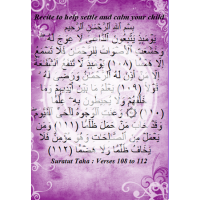 Recite to help settle and calm your child
بِسْمِ اللَّهِ الرَّحْمَنِ الرَّحِيمِ
يَوْمَئِذٍ يَتَّبِعُونَ الدَّاعِيَ لَا عِوَجَ لَهُ
وَخَشَعَتِ الْأَصْوَاتُ لِلرَّحْمَنِ فَلَا تَسْمَعُ
إِلَّا هَمْسًا (١٠٨) يَوْمَئِذٍ لَا تَنْفَعُ الشَّفَاعَةُ
إِلَّا مَنْ أَذِنَ لَهُ الرَّحْمَنُ وَرَضِيَ لَهُ
قَوْلًا (١٠٩) يَعْلَمُ مَا بَيْنَ أَيْدِيهِمْ وَمَا
خَلْفَهُمْ وَلَا يُحِيطُونَ بِهِ عِلْمًا
(١١٠) وَعَنَتِ الْوُجُوهُ لِلْحَيِّ الْقَيُّومِ
وَقَدْ خَابَ مَنْ حَمَلَ ظُلْمًا (١١١) وَمَنْ
يَعْمَلْ مِنَ الصَّالِحَاتِ وَهُوَ مُؤْمِنٌ فَلَا
يَخَافُ ظُلْمًا وَلَا هَضْمًا (١١٢)
Suratat Taha : Verses 108 to 112